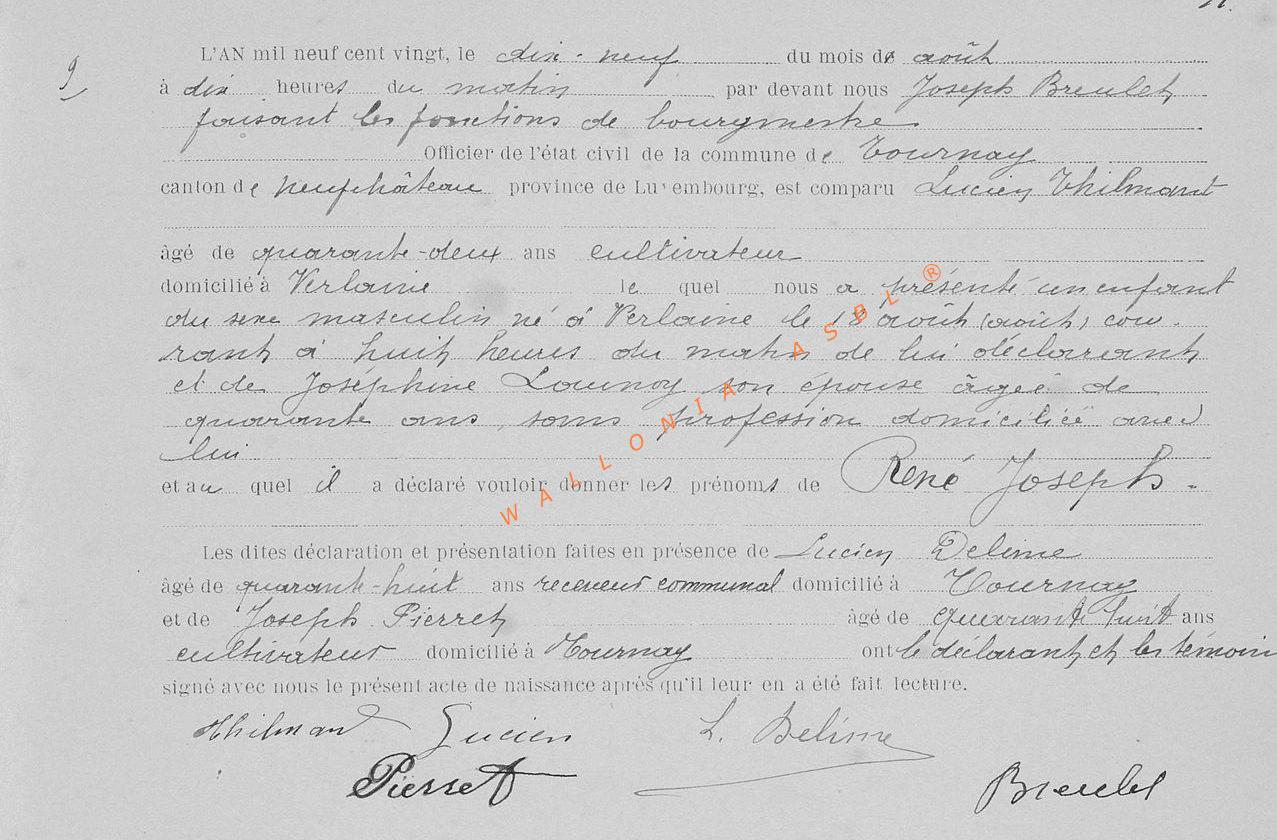 9
L'AN mil neuf cent vingt, le dix-neuf du mois de août
à dix heures du matin par devant nous Joseph Breulet
faisant les fonctions de bourgmestre
Officier de l'état civil de la commune de Tournay
canton de Neufchâteau province de Luxembourg, est comparu Lucien Thilmant
âgé de quarante-deux ans cultivateur
domicilié à Verlaine le quel nous a présenté un enfant
du sexe masculin né à Verlaine le 18 août (août) cou-
rant à huit heures du matin de lui déclarant
et de Joséphine Launoy son épouse âgée de
quarante ans, sans profession domiciliée avec
lui
et au quel il a déclaré vouloir donner les prénoms de René Joseph.
Les dites déclaration et présentation faites en présence de Lucien Delime
âgé de quarante-huit ans receveur communal domicilié à Tournay
et de Joseph Pierret âgé de quarante huit ans
cultivateur domicilié à Tournay ont le déclarant et les témoins
signé avec nous le présent acte de naissance après qu'il leur en a été fait lecture.
Thilmant Lucien L. Delime
Pierret Breulet
WALLONIA ASBL ®